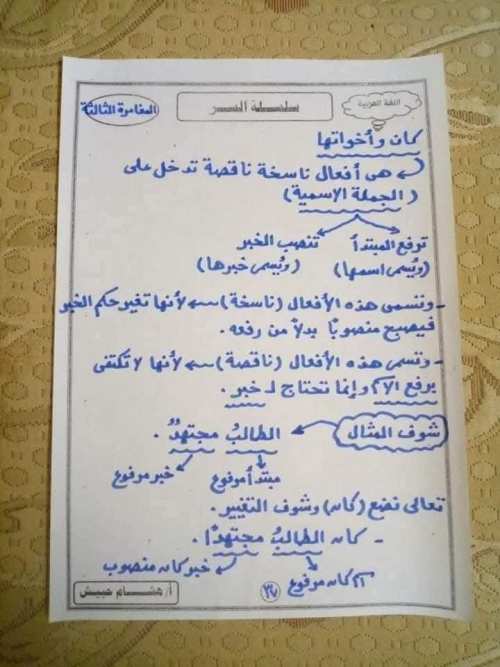 اللغة العربية
سلسلة النسر
المغامرة الثالثة
كان وأخواتها
هى أفعال ناسخة ناقصة تدخل على
(الجملة الإسمية)
ترفع المبتدأ تنصب الخبر
(ويُسمى اسمها) (ويُسمى خبرها)
- وتتسمى هذه الأفعال (ناسخة) لأنها تغير حكم الخبر
فيصبح منصوبًا بدلاً من رفعه.
- وتسمى هذه الأفعال (ناقصة) لأنها لا تكتفى
برفع الاسم وإنما تحتاج لـ خبر.
شوف المثال الطالبُ مجتهدٌ.
مبتدأ مرفوع خبر مرفوع
تعالى نضع (كان) وشوف التغيير.
- كان الطالبُ مجتهدًا.
اسم كان مرفوع خبر كان منصوب
أ/ هشام حبيش